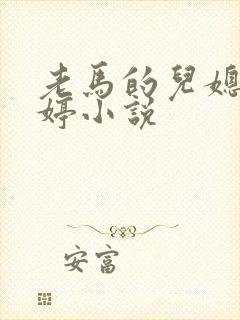 老馬的兒媳
婷小説
安富